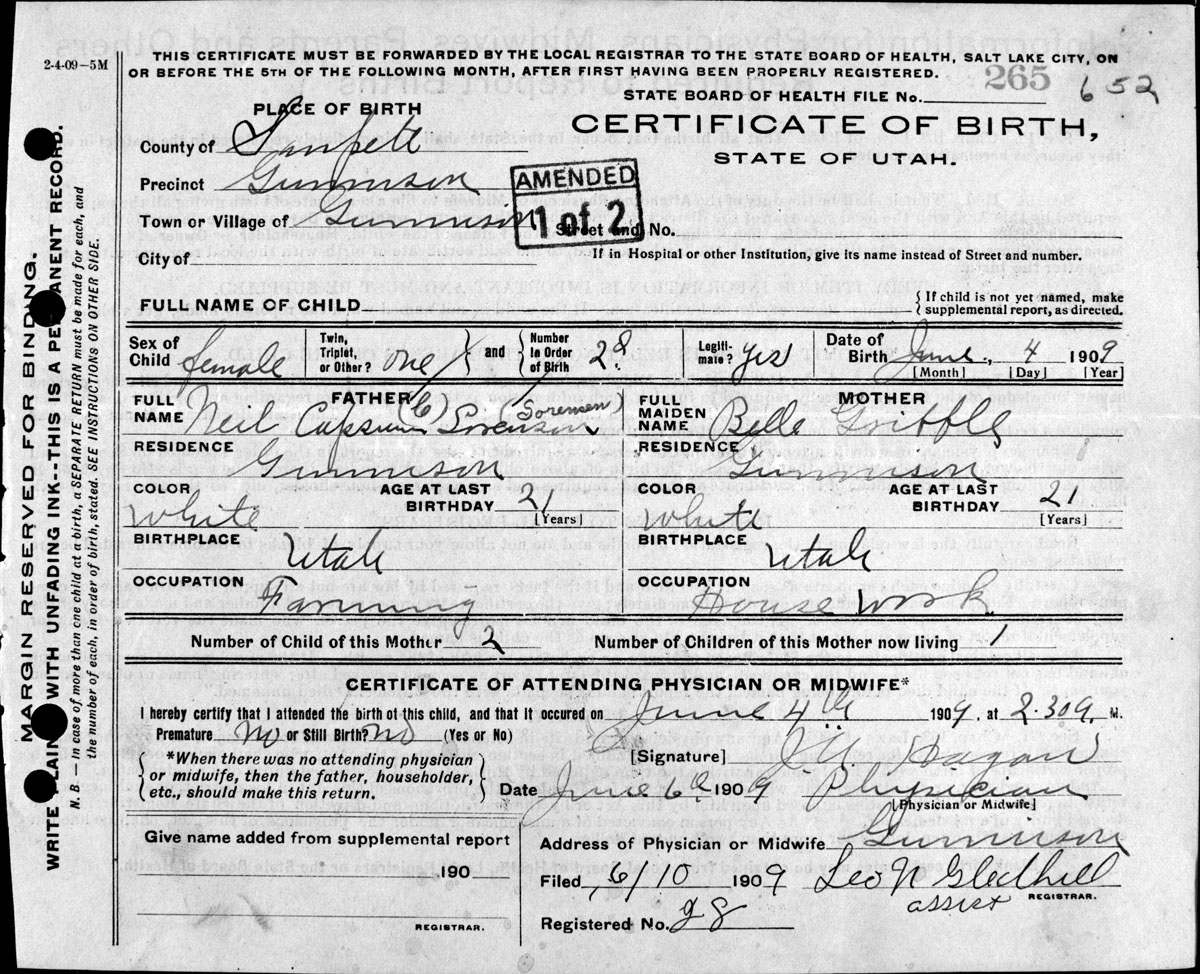 2-4-09-5M
THIS CERTIFICATE MUST BE FORWARDED BY THE LOCAL REGISTRAR TO THE STATE BOARD OF HEALTH, SALT LAKE CITY, ON
OR BEFORE THE 5TH OF THE FOLLOWING MONTH, AFTER FIRST HAVING BEEN PROPERLY REGISTERED.
265
652
STATE BOARD OF HEALTH FILE No.
PLACE OF BIRTH
CERTIFICATE OF BIRTH,
STATE OF UTAH.
County of Sanpete
Precinct Gunnison
AMENDED
1 of 2
Town or Village of Gunnison Street and No.
City of
If in Hospital or other Institution, give its name instead of Street and number.
FULL NAME OF CHILD
{ If child is not yet named, make
supplemental report, as directed.
Sex of Child female
Twin, Triplet, or Other? one } and { Number in Order of Birth 28
Legiti-mate? yes
Date of Birth June, 4 1909
[Month] [Day] [Year]
FATHER
FULL NAME Neil (C) Sorenson (Sorensen)
RESIDENCE Gunnison
COLOR White
AGE AT LAST BIRTHDAY 21 [Years]
BIRTHPLACE Utah
OCCUPATION Farming
MOTHER
FULL MAIDEN NAME Belle Gribble
RESIDENCE Gunnison
COLOR White
AGE AT LAST BIRTHDAY 21 [Years]
BIRTHPLACE Utah
OCCUPATION House Work
Number of Child of this Mother 2 Number of Children of this Mother now living 1
CERTIFICATE OF ATTENDING PHYSICIAN OR MIDWIFE*
I hereby certify that I attended the birth of this child, and that it occured on June 4th 1909, at 2.30 a M.
Premature no or Still Birth? no (Yes or No)
[Signature] Hagan
*When there was no attending physician
or midwife, then the father, householder,
etc., should make this return.
Date June 6 1909 Physician
[Physician or Midwife]
Give name added from supplemental report
190
REGISTRAR.
Address of Physician or Midwife Gunnison
Filed 6/10 1909 Leo N Gledhill
assist REGISTRAR.
Registered No. 28
MARGIN RESERVED FOR BINDING.
WRITE PLAINLY WITH UNFADING INK--THIS IS A PERMANENT RECORD.
N. B. — In case of more than one child at a birth, a SEPARATE RETURN must be made for each, and
the number of each, in order of birth, stated. SEE INSTRUCTIONS ON OTHER SIDE.